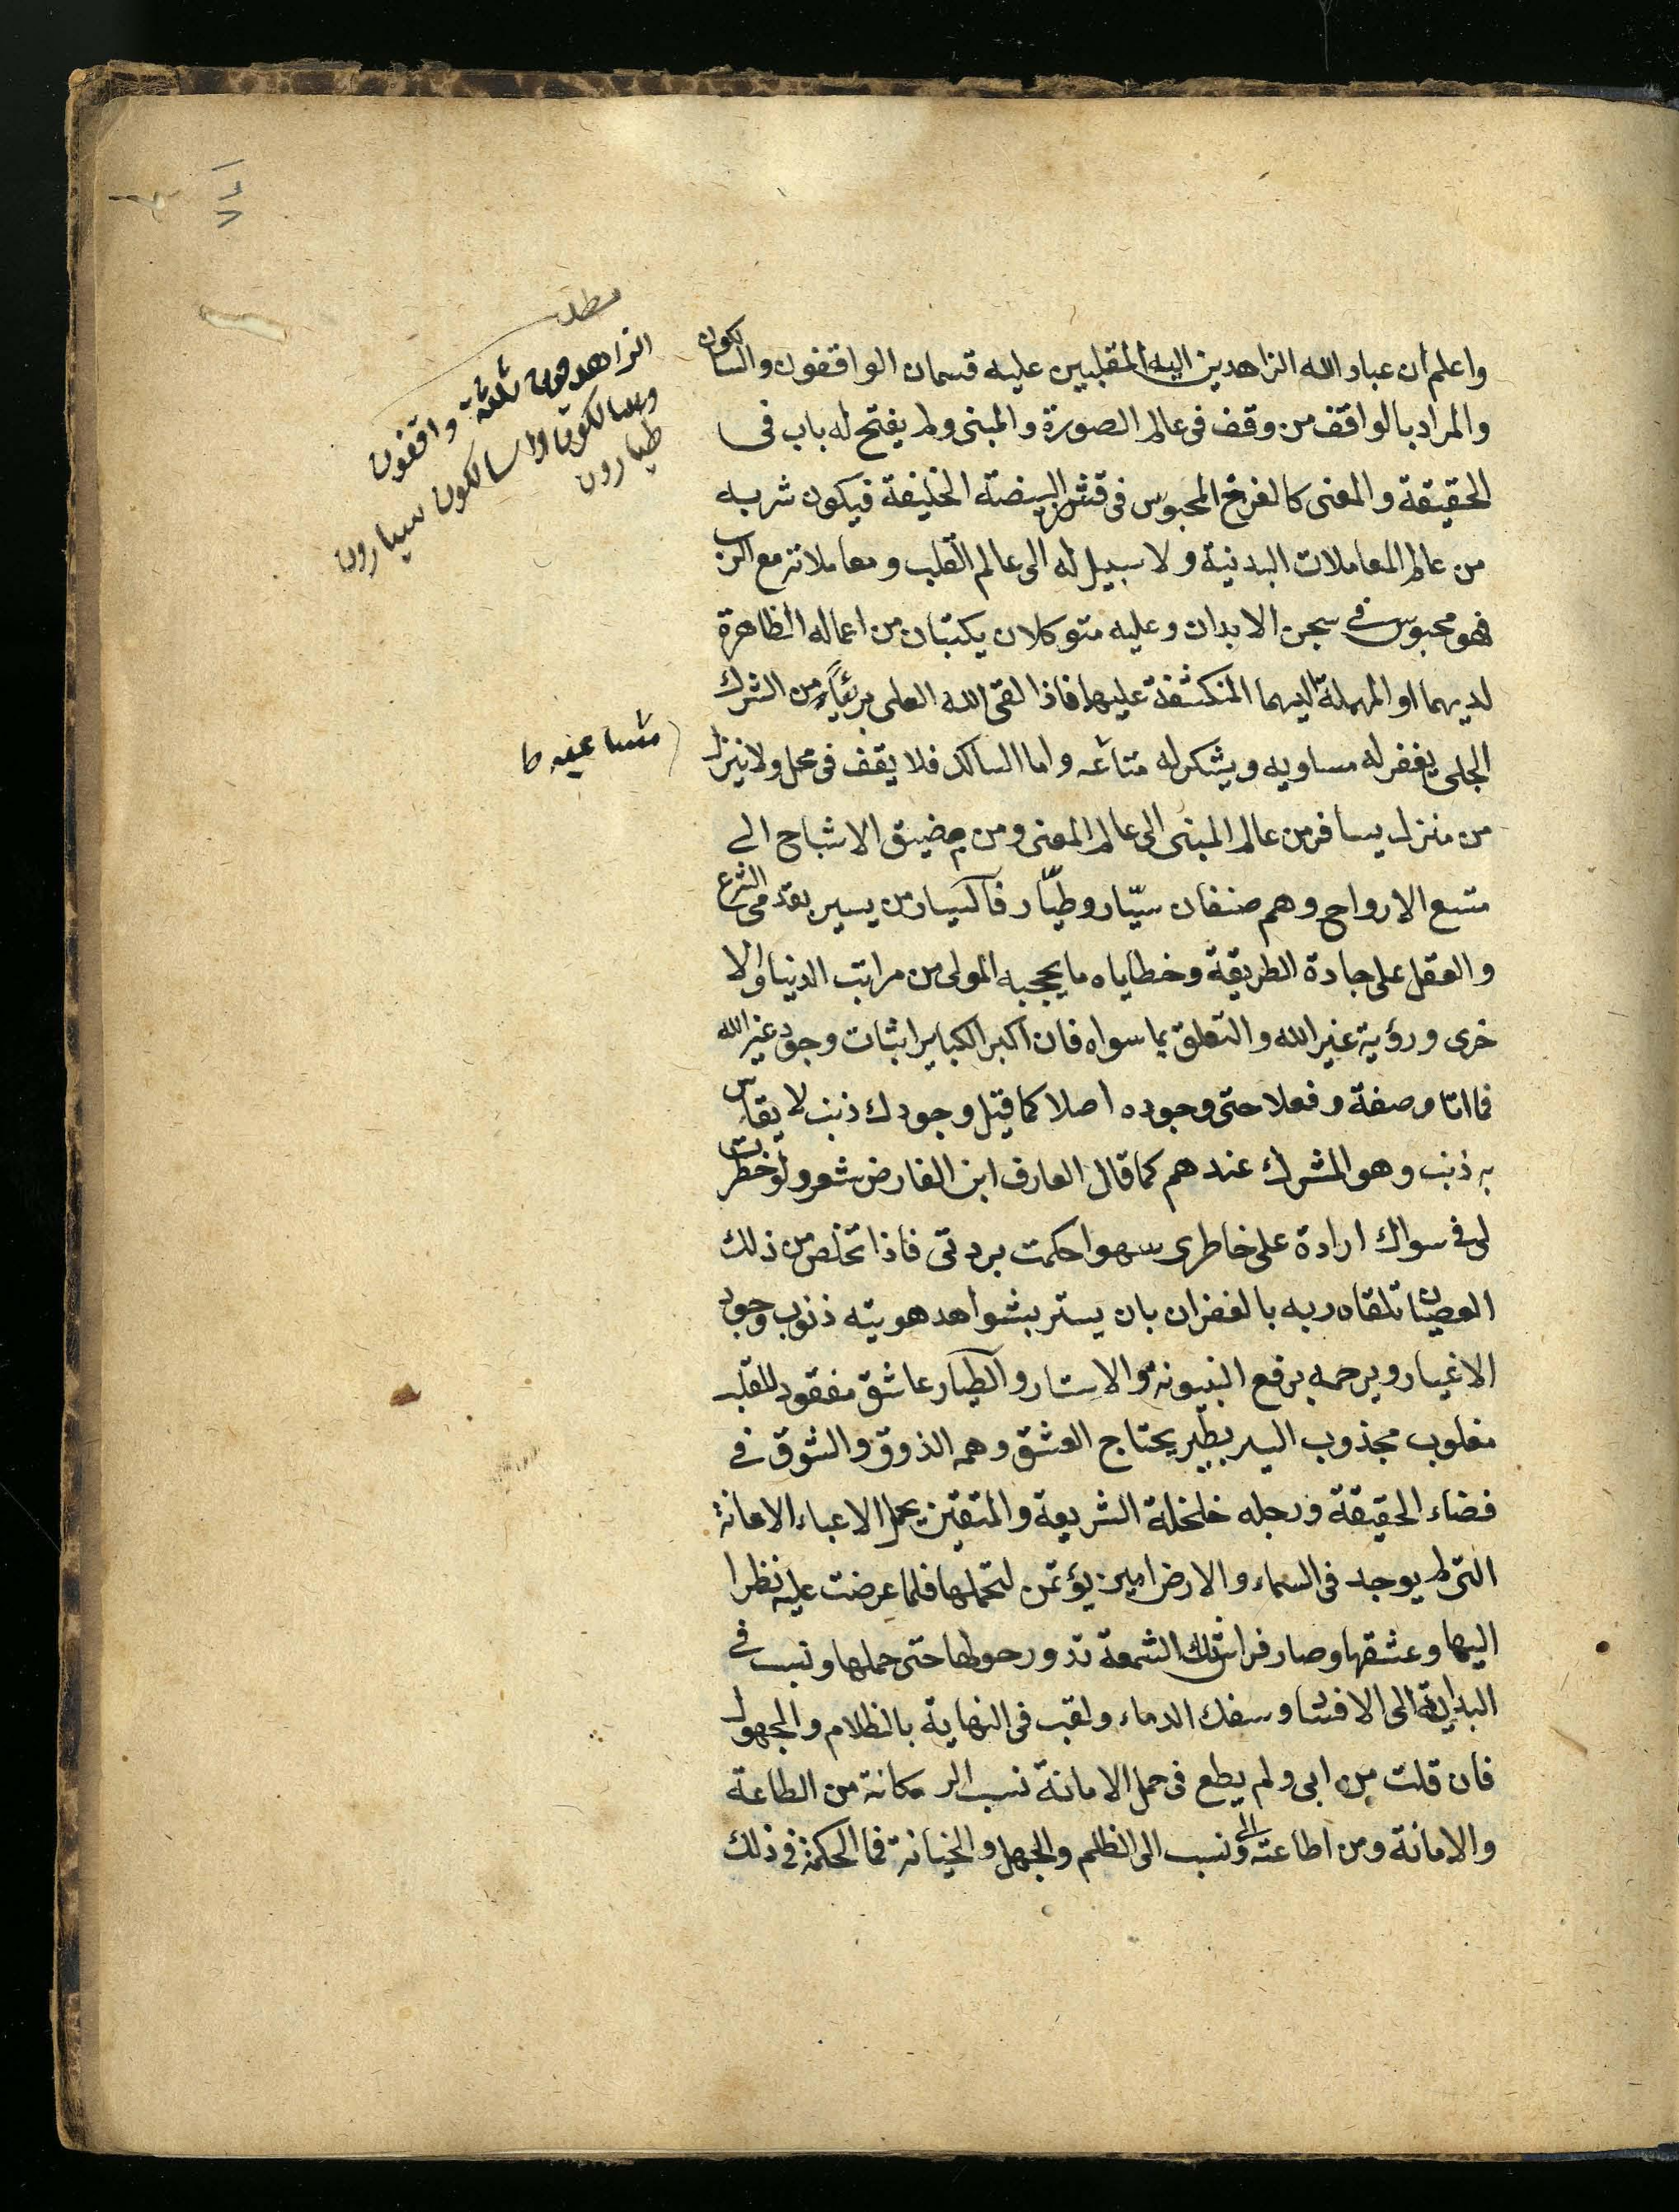 مطلب
الزاهدون ثلثة واقفون
وسالكون والسالكون سيارون
طيارون
واعلم ان عباد الله الزاهدين اليه المقلبين عليه قسمان الواقفون والسالكون
والمراد بالواقف من وقف فى عالم الصورة والمبنى ولم يفتح له باب فى
الحقيقة والمعنى كالفرخ المحبوس فى قشر البيضة الخليفة فيكون شربه
من عالم المعاملات البدنية ولا سبيل له الى عالم القلب ومعاملاته مع الرب
فهو محبوس فى سجن الابدان وعليه متوكلان يكتبان من اعماله الظاهرة
لديهما او المهملة اليهما المنكشفة عليها فاذا لقى الله العلى بريئاً من الشرك
الجلى يغفر له مساويه ويشكر له متاعه واما السالك فلا يقف فى محل ولا ينزل
مساعيه ط
من منزل يسافر من عالم المبنى الى عالم المعنى ومن مضيق الاشباح الى
متسع الارواح وهم صنفان سيّار وطيّار فالسيار من يسير بقدمى الشرع
والعقل على جادة الطريقة وخطاياه ما يحجبه المولى من مراتب الدنيا والا
خرى ورؤية غير الله والتعلق بما سواه فان اكبر الكباير اثبات وجود غير الله
ذاتا وصفة وفعلا حتى وجوده اصلا كما قيل وجودك ذنب لا يقاس
به ذنب وهو المشرك عندهم كما قال العارف ابن الفارض شعر ولو خطرت
لى فى سواك ارادة على خاطرى سهوا حكمت بردتى فاذا تخلص من ذلك
العصيان تلقاه ربه بالغفران بان يستر بشواهد هويته ذنوب وجود
الاغيار ويرحمه برفع البينونة والاستار والطيار عاشق مفقود للقلب
مغلوب مجذوب السير بطير يحتاج العشق وهمه الذوق والشوق فى
فضاء الحقيقة ورجله خلخلة الشريعة والمتقين يحمل الاعباء الامانة
التى لم يوجد فى السماء والارض امين يؤتمن لتحملها فلما عرضت عليه نظرا
اليها وعشقها وصار فراش تلك الشمعة تدور حولها حتى حملها ونسب فى
البداية الى الافساد وسفك الدماء ولقب فى النهاية بالظلام والمجهول
فان قلت من ابى ولم يطع فى حمل الامانة نسب الى مكانة من الطاعة
والامانة ومن اطاعته ونسب الى الظلم والجهل والخيانة فما الحكمة فى ذلك